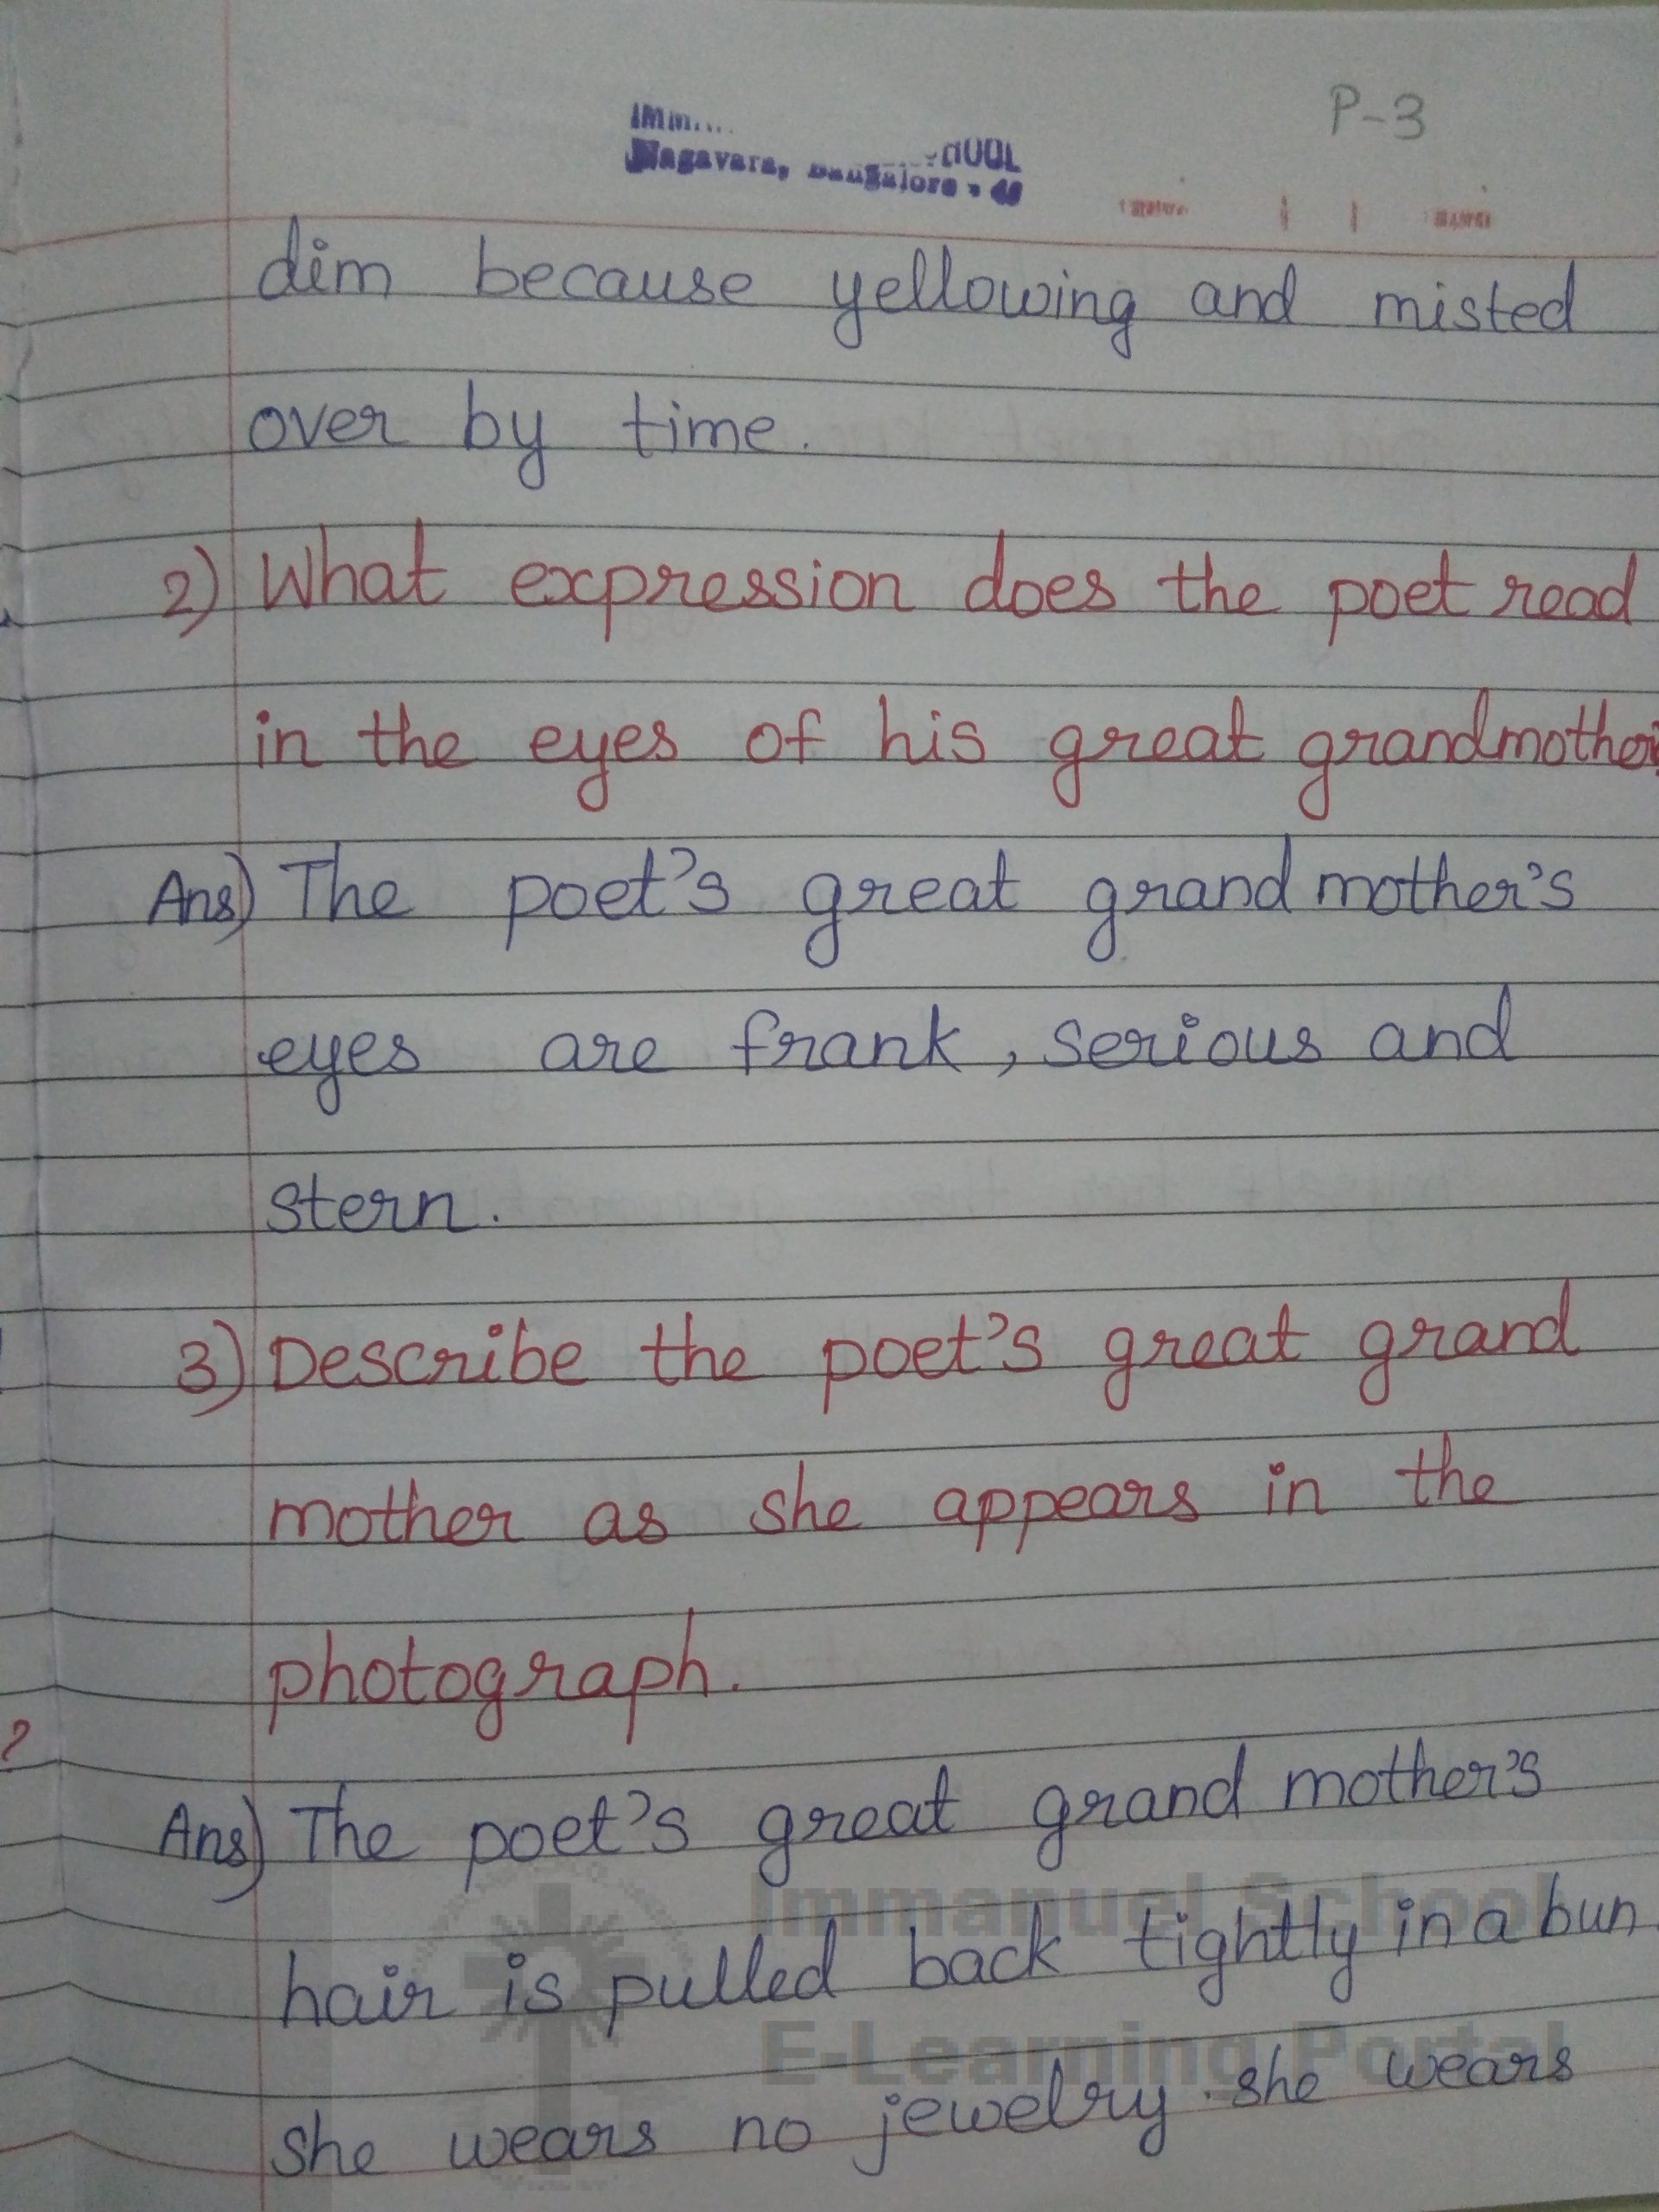 P-3
Nagavara, Bangalore - 
dim because yellowing and misted
over by time.
2) What expression does the poet read
in the eyes of his great grandmother
Ans) The poet's great grand mother's
eyes are frank, serious and
stern.
3) Describe the poet's great grand
mother as she appears in the
photograph.
?
Ans) The poet's great grand mother's
hair is pulled back tightly in a bun.
she wears no jewelry. she wears
Immanuel School
E-Learning Portal